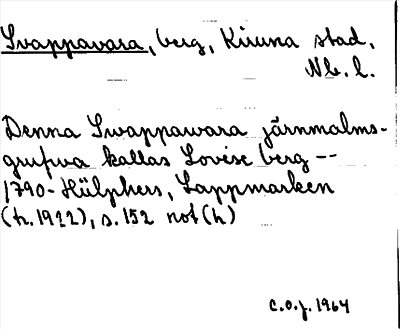 Svappavara, berg, Kiruna stad,
Nb. l.
Denna Swappawara järnmalms-
grufwa kallas Lovise berg --
1790 - Hülphers, Lappmarken
(tr. 1922), s. 152 not (h)
C.O.J. 1964